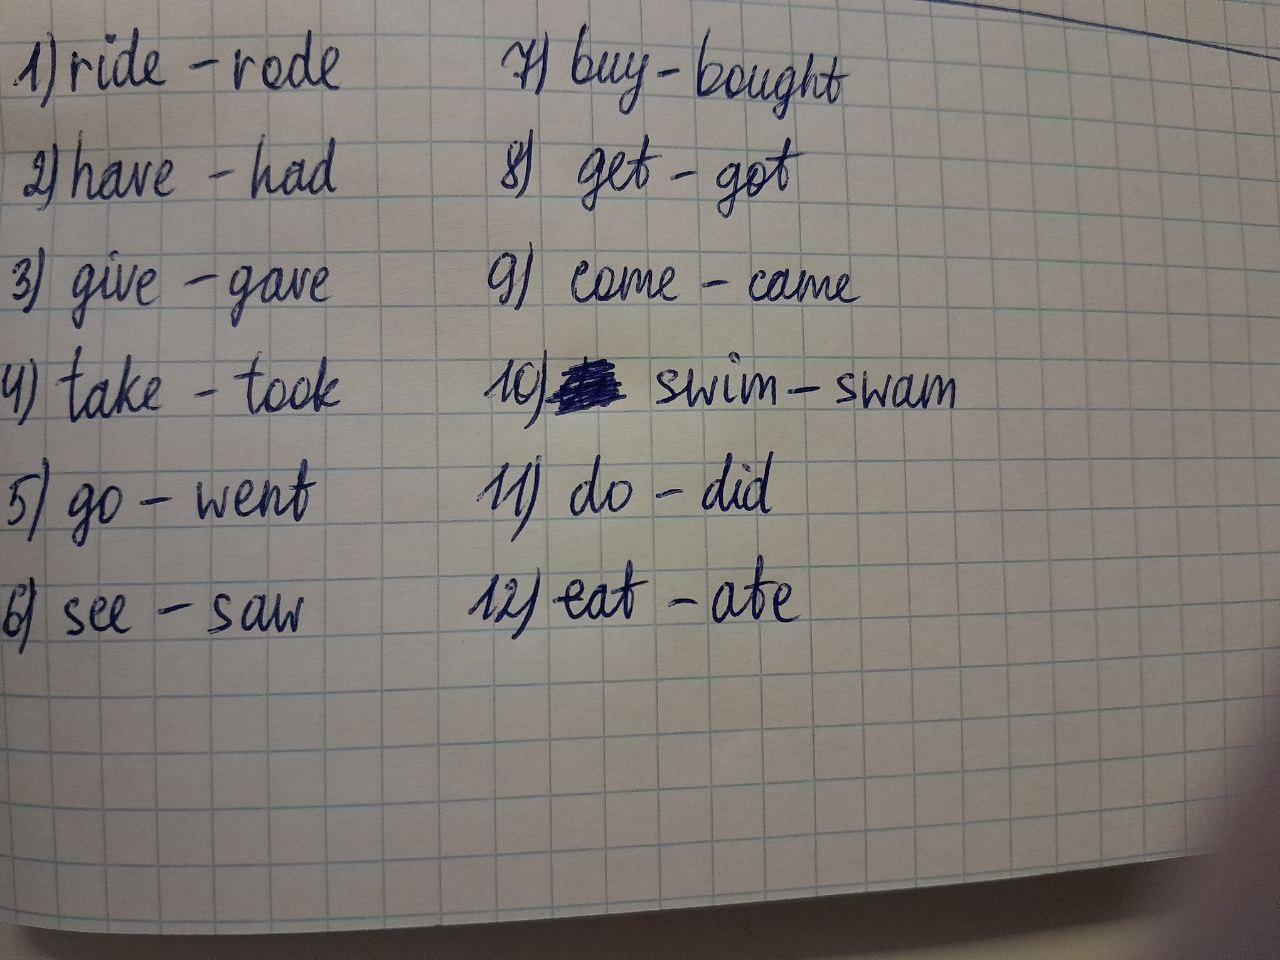 1) ride - rode
2) have - had
3) give - gave
4) take - took
5) go - went
6) see - saw
7) buy - bought
8) get - got
9) come - came
10) swim - swam
11) do - did
12) eat - ate